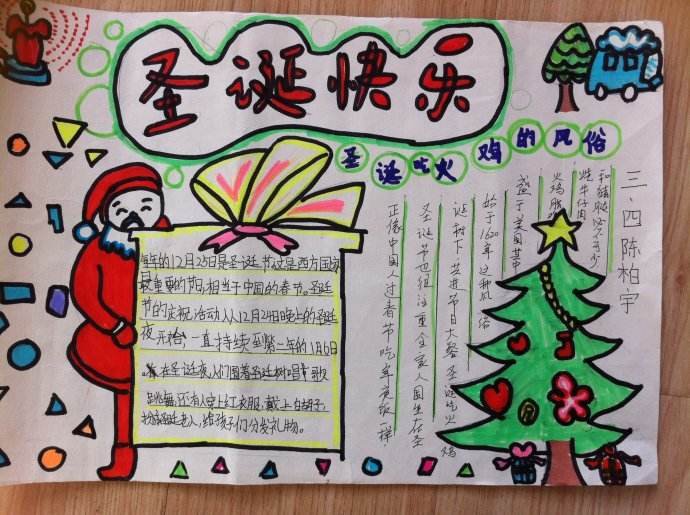 圣诞快乐
圣诞吃火鸡的风俗
每年的12月25日是圣诞节,这是西方国家
最重要的节日,相当于中国的春节。圣诞
节的庆祝活动从12月24日晚上的圣诞
夜开始,一直持续到第二年的1月6日
在圣诞夜人们围着圣诞树唱歌
跳舞,还有人穿上红衣服,戴上白胡子,
扮成圣诞老人,给孩子们分发礼物。
正像中国人过春节吃年夜饭一样
圣诞节也很注重全家人围坐在圣
诞树下,共进节日大餐圣诞吃火鸡
始于1620年这种风俗
盛于美国其中
火鸡
炖牛仔肉
和猪腿必不可少
三.四陈柏宇